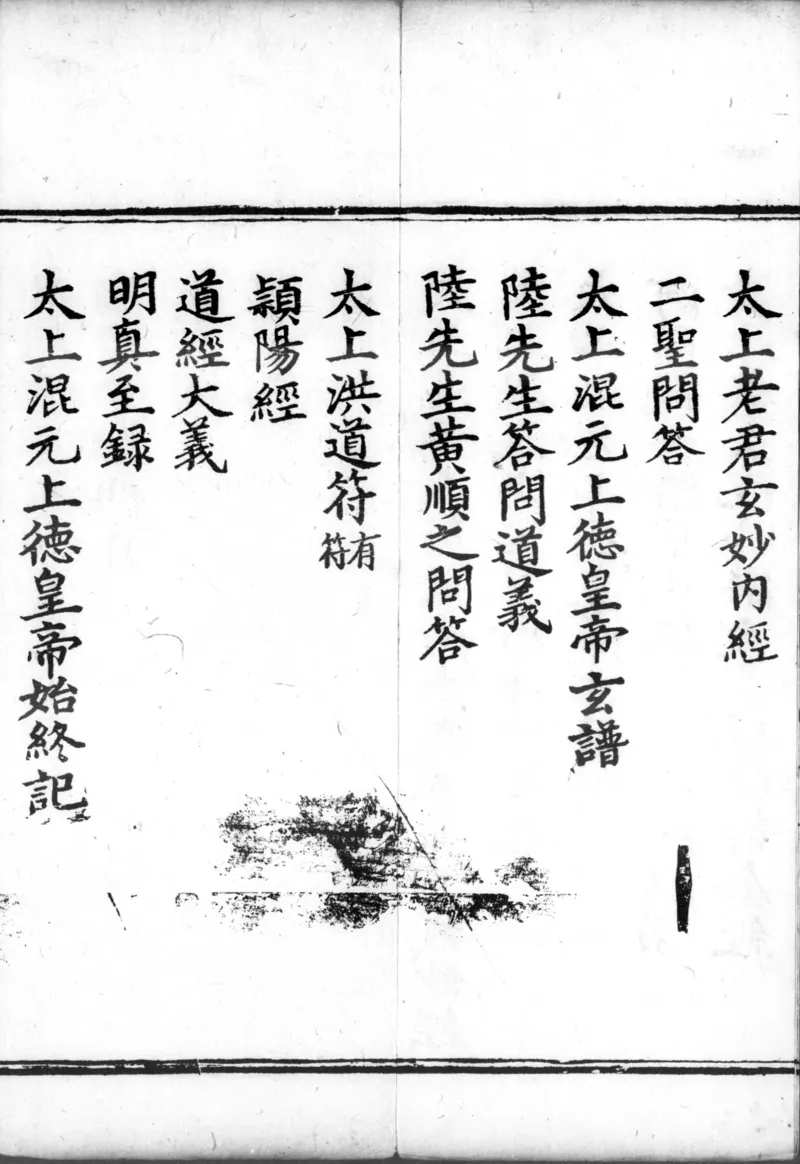 太上老君玄妙内經
二聖問答
太上混元上徳皇帝玄譜
陸先生答問道義
陸先生黄順之問答
太上洪道符有符
頴陽經
道經大義
明真至録
太上混元上徳皇帝始終記